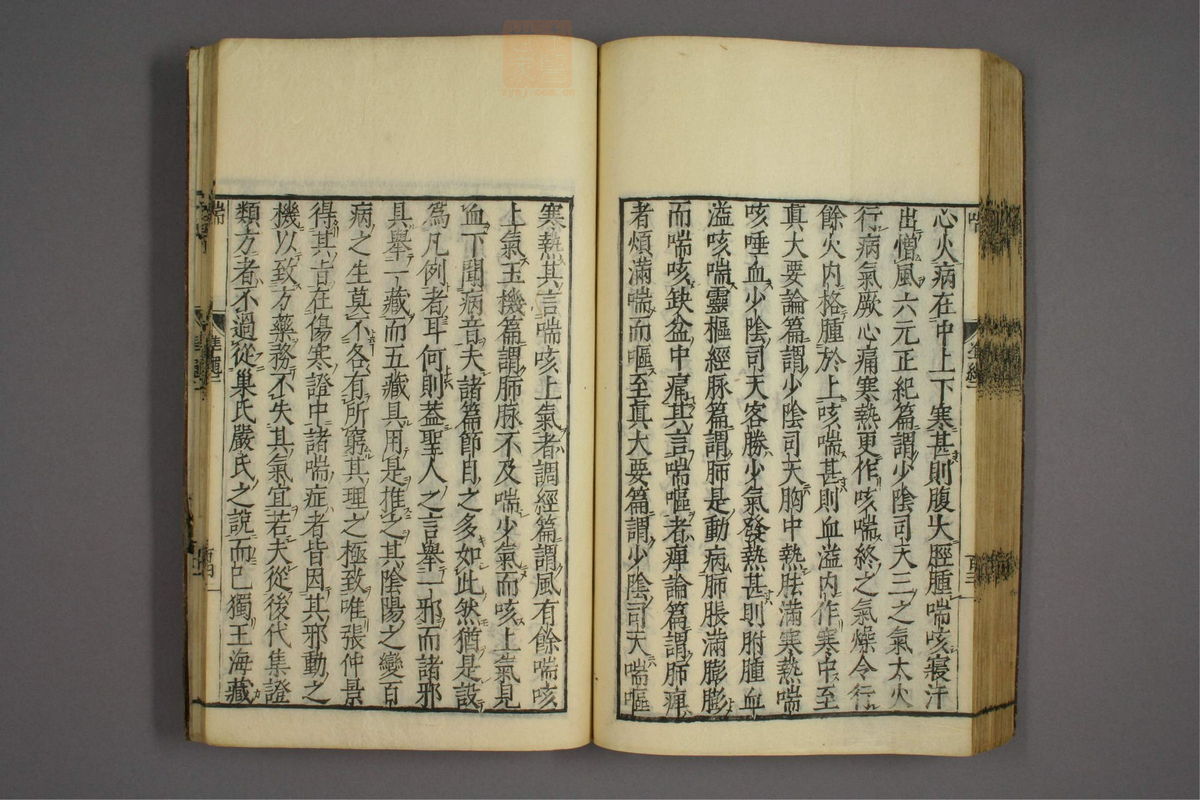 心火病在中上下寒甚則腹大脛腫喘咳寢汗
出憎風六元正紀篇謂少陰司天三之氣太火
行病氣厥心痛寒熱更作咳喘終之氣燥令行
餘火内格腫於上咳喘甚則血溢内作寒中至
真大要論篇謂少陰司天胸中熱胠滿寒熱喘
咳唾血少陰司天客勝少氣發熱甚則胕腫血
溢咳喘靈樞經脉篇謂肺是動病肺脹滿膨膨
而喘咳缺盆中痛其言喘嘔者痺論篇謂肺痺
者煩滿喘而嘔至眞大要篇謂少陰司天喘嘔
寒熱其言喘咳上氣者調經篇謂風有餘喘咳
上氣玉機篇謂肺脉不及喘少氣而咳上氣見
血下聞病音夫諸篇節目之多如此然猶是設
爲凡例者耳何則蓋聖人之言舉一邪而諸邪
具舉一藏而五藏具用是推之其陰陽之變百
病之生莫不各有所窮其理之極致唯張仲景
得其旨在傷寒證中諸喘症者皆因其邪動之
機以致方藥務不失其氣宜若夫從後代集證
類方者不過從巢氏嚴氏之說而已獨王海藏
喘